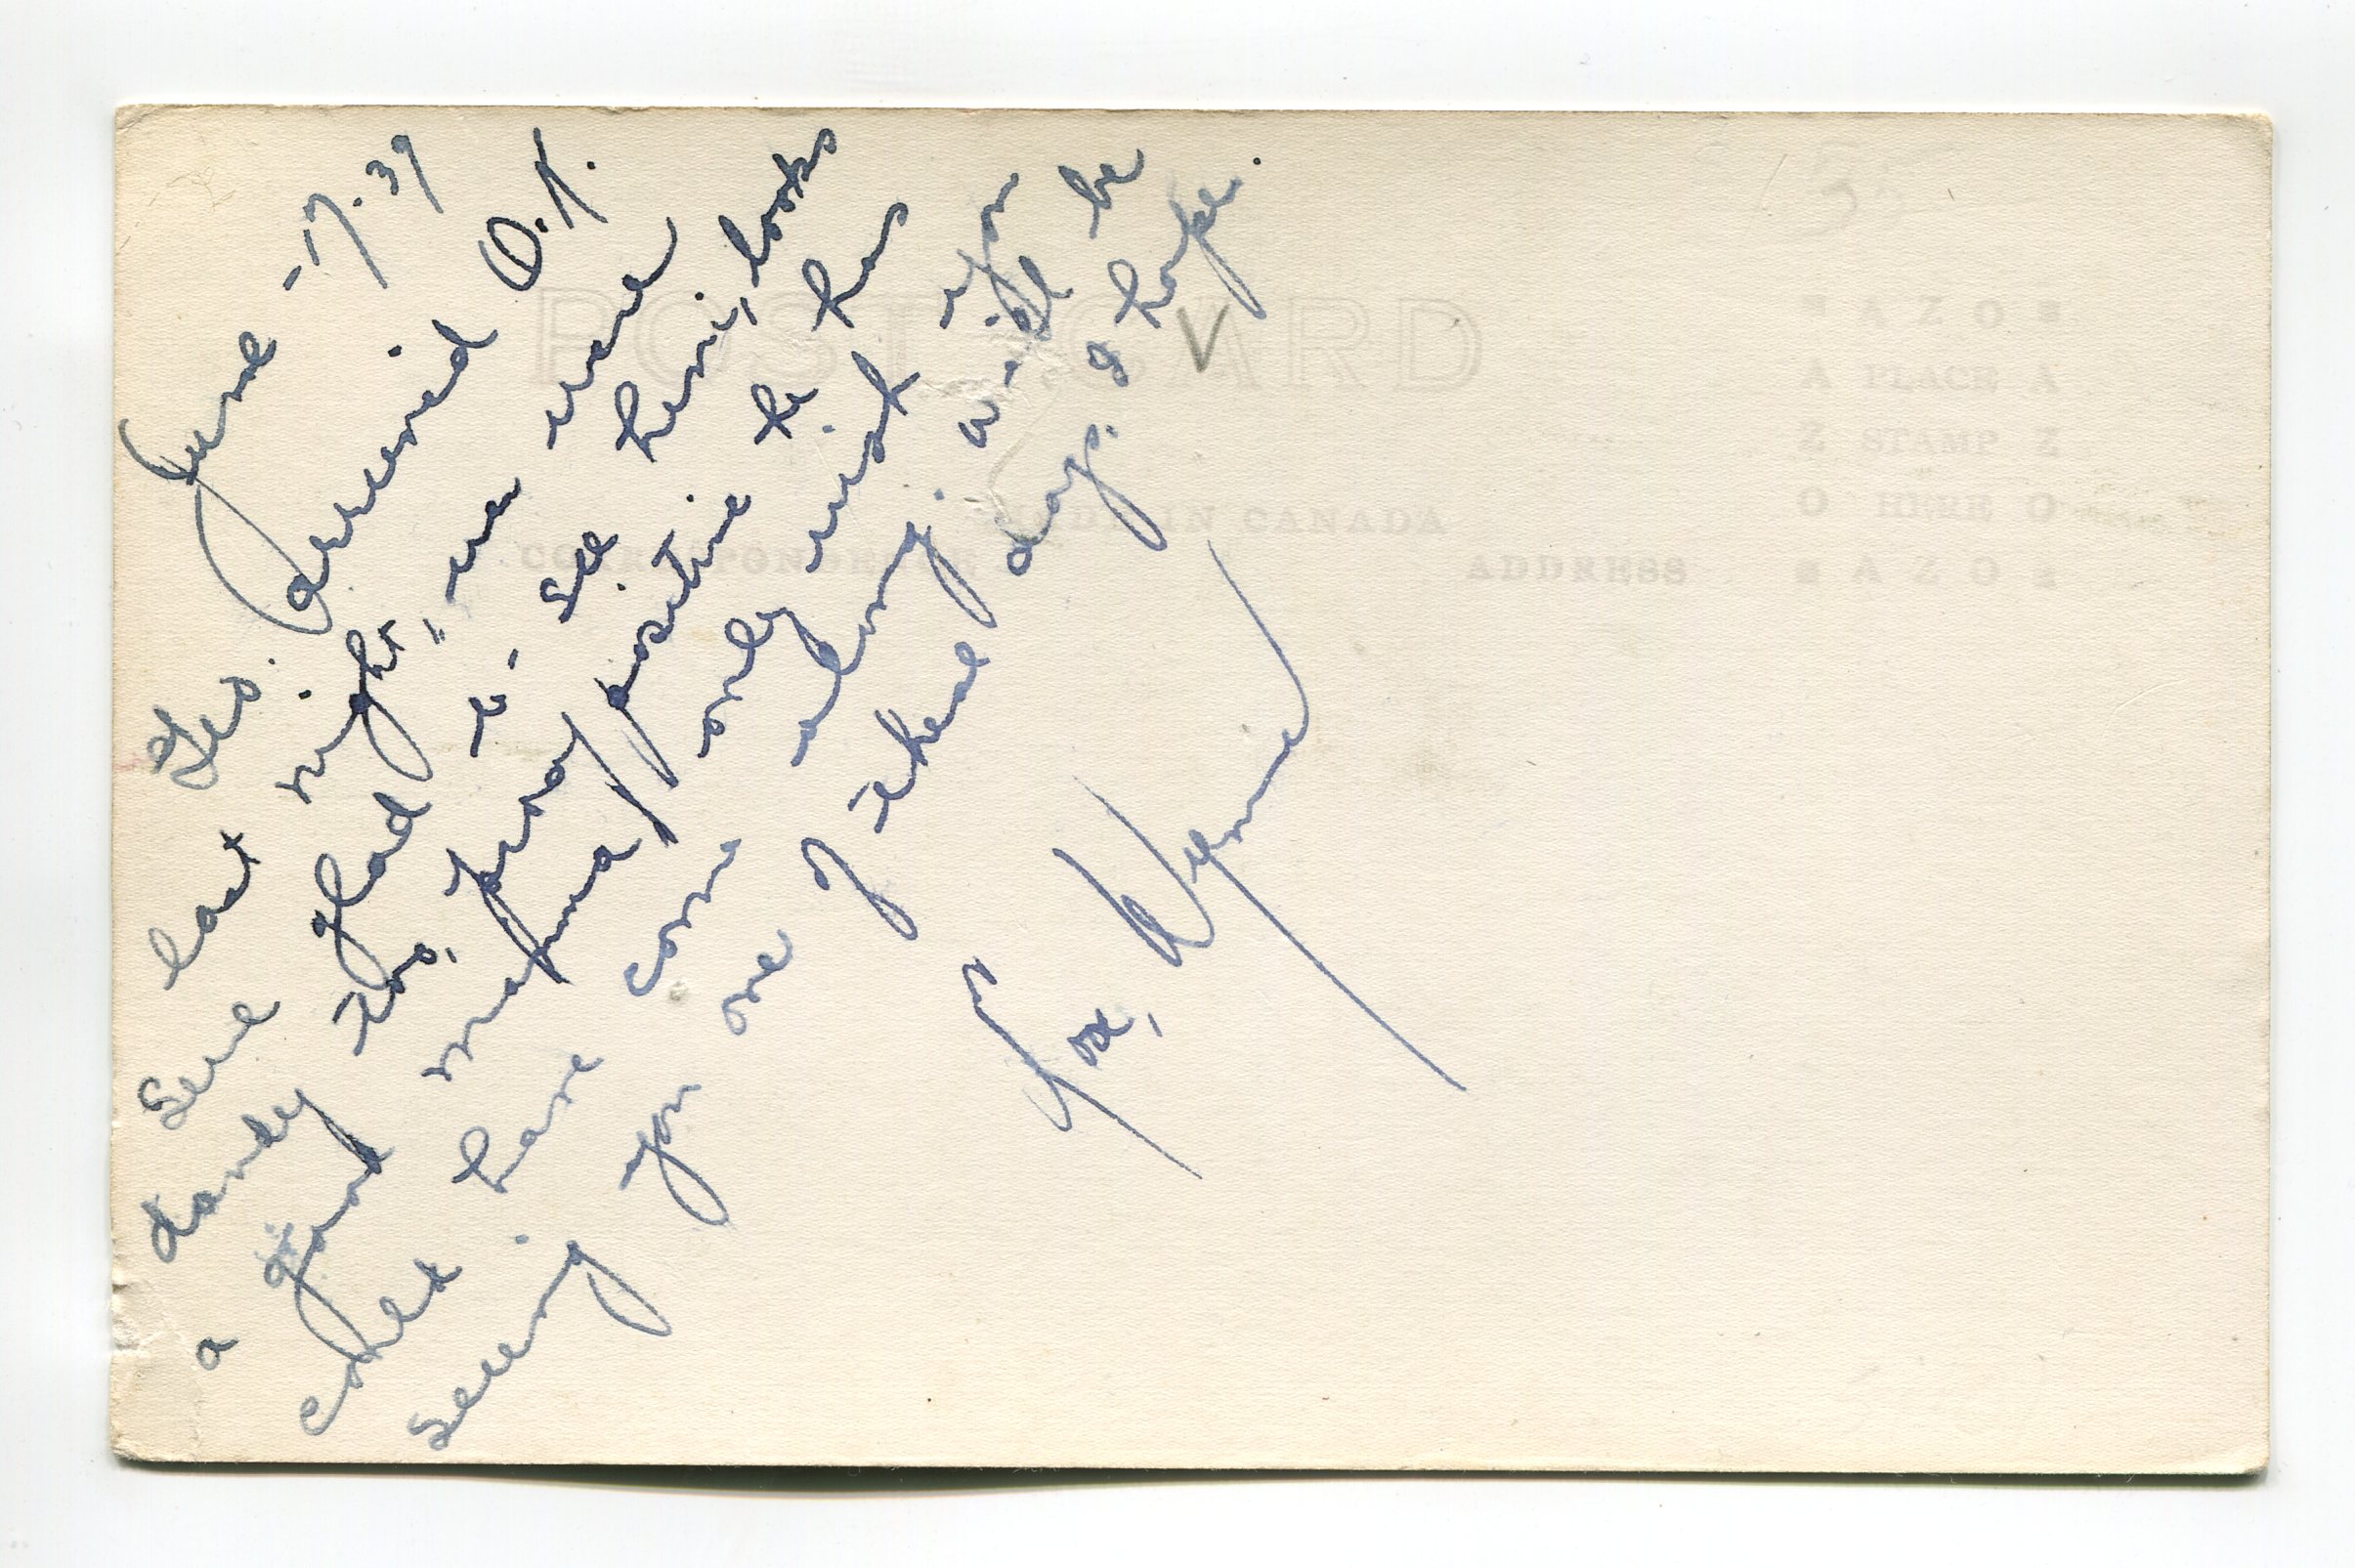 June - 17. 39
Geo. arrived O.K.
last night, we were
Sure glad to see him, looks
dandy too, proof positive he has
a good mama, only wish you
could have come along. will be
seeing you one of these days. I hope.
POST CARD
MADE IN CANADA
CORRESPONDENCE
ADDRESS
AZO
PLACE
STAMP
HERE
AZO